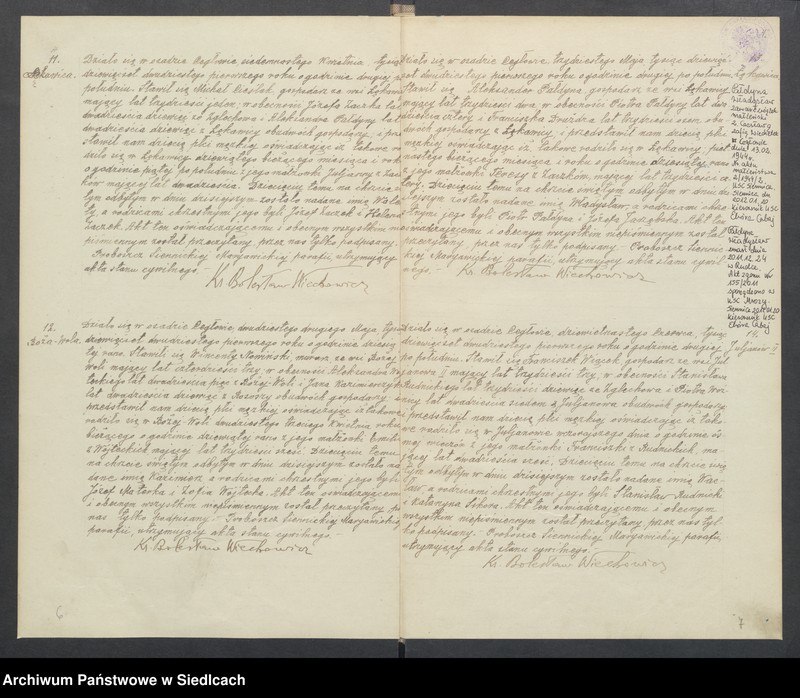 11.
Łękawica.
Działo się w osadzie Cegłowie siedemnastego Kwietnia tysiąc
dziewięćset dwudziestego pierwszego roku o godzinie drugiej po
południu. Stawił się Michał Cieślak, gospodarz ze wsi Łękawicy
mający lat trzydzieści jeden, w obecności Józefa Laczka lat
dwadzieścia dziewięć ze Zglechowa i Aleksandra Pałdyny lat
dwadzieścia dziewięć z Łękawicy obudwóch gospodarzy, i przed-
stawił nam dziecię płci męzkiej oświadczając iż takowe uro-
dziło się w Łękawicy dziewiątego bieżącego miesiąca i roku
o godzinie piątej po południu z jego małżonki Juljanny z Lacz-
ków mającej lat dwadzieścia. Dziecięciu temu na chrzcie świę-
tym odbytym w dniu dzisiejszym zostało nadane imię
a rodzicami chrzestnymi jego byli Józef Laczek i Helena
Laczek. Akt ten oświadczającemu i obecnym wszystkim nie-
piśmiennym został przeczytany, przez nas tylko podpisany.
Proboszcz Siennickiej Marjawickiej parafii, utrzymujący
akta stanu cywilnego.
Ks. Bolesław Wiechowicz
12.
Boża-Wola.
Działo się w osadzie Cegłowie, dwudziestego drugiego Maja tysiąc
dziewięćset dwudziestego pierwszego roku o godzinie dziesią-
tej rano. Stawił się Wincenty Nowiński, murarz ze wsi Bożej
Woli, mający lat czterdzieści trzy, w obecności Aleksandra
lat dwadzieścia pięć z Bożej Woli i Jana Kazimierczyka
lat dwadzieścia dziewięć z obudwóch gospodarzy i
przedstawił nam dziecię płci męzkiej oświadczając iż takowe
urodziło się w Bożej Woli dwudziestego trzeciego Kwietnia roku
bieżącego o godzinie dziewiątej rano z jego małżonki Emilii
z Wojteckich mającej lat trzydzieści sześć. Dziecięciu temu
na chrzcie świętym odbytym w dniu dzisiejszym zostało na-
dane imię Kazimierz, a rodzicami chrzestnymi jego byli
Józef i Zofia Wojtecka. Akt ten oświadczającemu
i obecnym wszystkim niepiśmiennym został przeczytany, przez
nas tylko podpisany. Proboszcz Siennickiej Marjawickiej
parafii, utrzymujący akta stanu cywilnego.
Ks. Bolesław Wiechowicz
6
Działo się w osadzie Cegłowie, trzydziestego Maja tysiąc dziewięć-
set dwudziestego pierwszego roku o godzinie drugiej po południu.
Stawił się Aleksander Pałdyna, gospodarz ze wsi Łękawicy
mający lat trzydzieści dwa, w obecności Piotra Pałdyny lat dwa-
dzieścia cztery i Franciszka lat trzydzieści osm obu-
dwóch gospodarzy z Łękawicy, i przedstawił nam dziecię płci
męzkiej oświadczając iż takowe urodziło się w Łękawicy
bieżącego miesiąca i roku o godzinie dziesiątej rano
z jego małżonki z Laczków, mającej lat trzydzieści
Dziecięciu temu na chrzcie świętym odbytym w dniu dzi-
siejszym zostało nadane imię Władysław, a rodzicami chrze-
stnymi jego byli Piotr Pałdyna i Józefa Akt ten
oświadczającemu i obecnym wszystkim niepiśmiennym został
przeczytany, przez nas tylko podpisany. Proboszcz Siennic-
kiej Marjawickiej parafii, utrzymujący akta stanu cywil-
nego.
Ks. Bolesław Wiechowicz
Łękawica.
Pałdyna
Władysław
zawarł związek
małżeński
z Cecylią
Zofią
w Cegłowie
dnia 13.02
1944r.
Nr aktu
małżeństwa
USC Siennica.
Siennica, dn.
Kierownik USC
Pałdyna
Władysław
zmarł dnia
2011.12.24
w Rudce.
Akt zgonu Nr
135/2011
sporządzono w
USC Mrozy.
Kierownik USC
14.
Juljanów II
Działo się w osadzie Cegłowie, dziewiętnastego Czerwca, tysiąc
dziewięćset dwudziestego pierwszego roku o godzinie drugiej
po południu. Stawił się Franciszek Wąsek gospodarz ze wsi Jul-
janowa II mający lat trzydzieści trzy, w obecności Stanisława
Rudnickiego lat trzydzieści dziewięć ze Zglechowa i Piotra
lat dwadzieścia siedem z Juljanowa obudwóch gospodarzy
i przedstawił nam dziecię płci męzkiej oświadczając iż tako-
we urodziło się w Juljanowie wczorajszego dnia o godzinie ós-
mej wieczór z jego małżonki Franciszki z Rudnickich, ma-
jącej lat dwadzieścia sześć. Dziecięciu temu na chrzcie świę-
tym odbytym w dniu dzisiejszym zostało nadane imię Wac-
ław, a rodzicami chrzestnymi jego byli Stanisław Rudnicki
i Katarzyna Akt ten oświadczającemu i obecnym
wszystkim niepiśmiennym został przeczytany przez nas tyl-
ko podpisany. Proboszcz Siennickiej Marjawickiej parafii,
utrzymujący akta stanu cywilnego.
Ks. Bolesław Wiechowicz
7
Archiwum Państwowe w Siedlcach